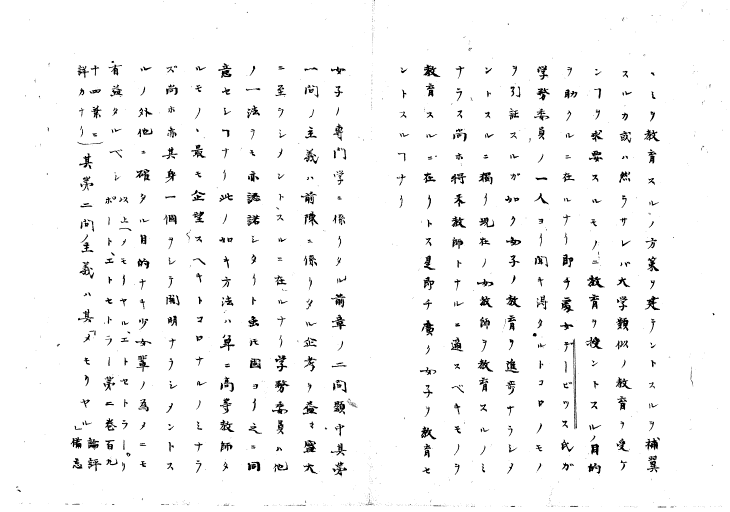 ヽミタ教育スルノ方策ヲ建テントスルヲ補翼
スルカ或ハ然ラサレバ大学類似ノ教育ヲ受ケ
ンヿヲ求要スルモノニ教育ヲ授ントスルノ目的
ヲ助クルニ在ルナリ即チ貴女デービッス氏ガ
学務委員ノ一人ヨリ聞キ得タルトコロノモノ
ヲ引証スルガ如ク女子ノ教育ヲ進歩ナラシメ
ントスルニ獨リ現在ノ女教師ヲ教育スルノミ
ナラス尚ホ将来教師トナルニ適スベキモノヲ
教育スルニ在リトス是即チ廣ク女子ヲ教育セ
ントスルヿナリ
女子ノ専門学ニ係リタル前章ノ二問題中其第
一問ノ主義ハ前陳ニ係リタル企考ヲ益マ盛大
ニ至ラシメントスルニ在ルナリ学務委員ハ他
ノ一法ヲモ亦認諾シタリト虽𪜈固ヨリ之ニ同
意セシヿナリ此ノ如キ方法ハ単ニ高等教師タ
ルモノヽ最モ企望スヘキトコロナルノミナラ
ズ尚ホ亦其身一個ヲシテ開明ナラシメントス
ルノ外他ニ確タル目的ナキ少女輩ノ為メニモ
有益タルベシ以上「メモリヤル、エトセトラー」リポート、エトセトラー第二巻百九
十四葉ニ詳カナリ其第二問ノ主義ハ其「メモリヤル」論評備志